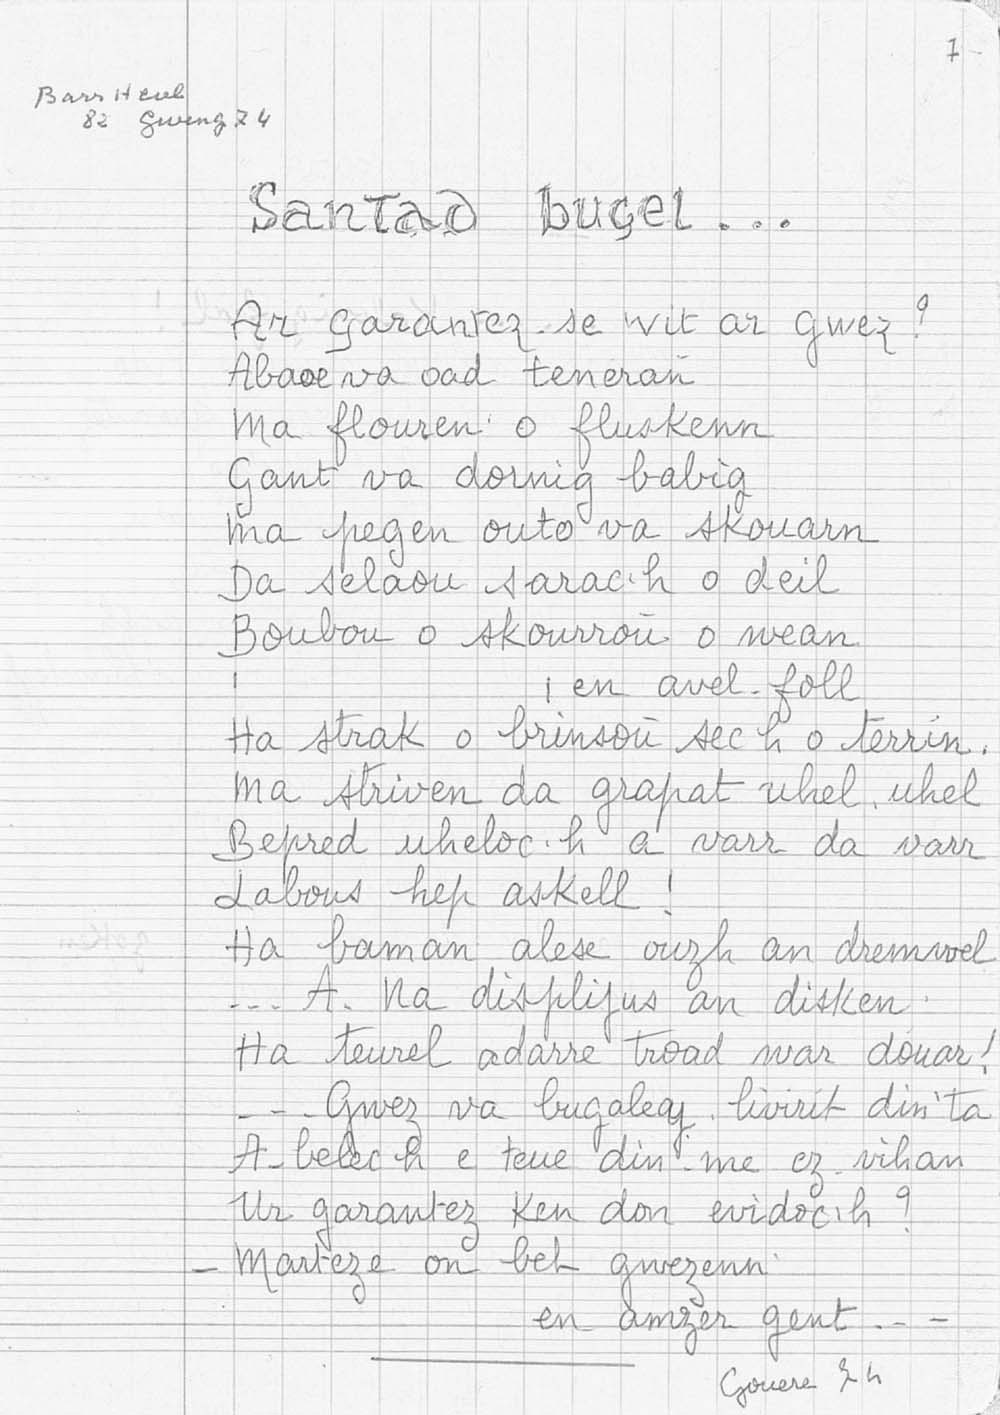 7
Barr Heol
82 Gweng 74
Santad bugel...
Ar garantez-se wit ar gwez ?
Abaoe va oad tenerañ
Ma flouren o fluskenn
Gant va dornig babig
Ma pegen outo va skouarn
Da selaou sarac'h o deil
Boubou o skourroù o wean
en avel-foll
Ha strak o brinsoù sec'h o terriñ.
Ma striven da grapat uhel, uhel
Bepred uheloc'h a varr da varr
Labous hep askell !
Ha bamañ alese ouzh an dremwel
... A. Na displijus an disken
Ha teurel adarre troad war douar !
--- Gwez va bugaleaj livirit din'ta
A-belec'h e teue din-me ez-vihan
Ur garantez ken don evidoc'h ?
- Marteze on bet gwezenn
en amzer gent ---
Gouere 74